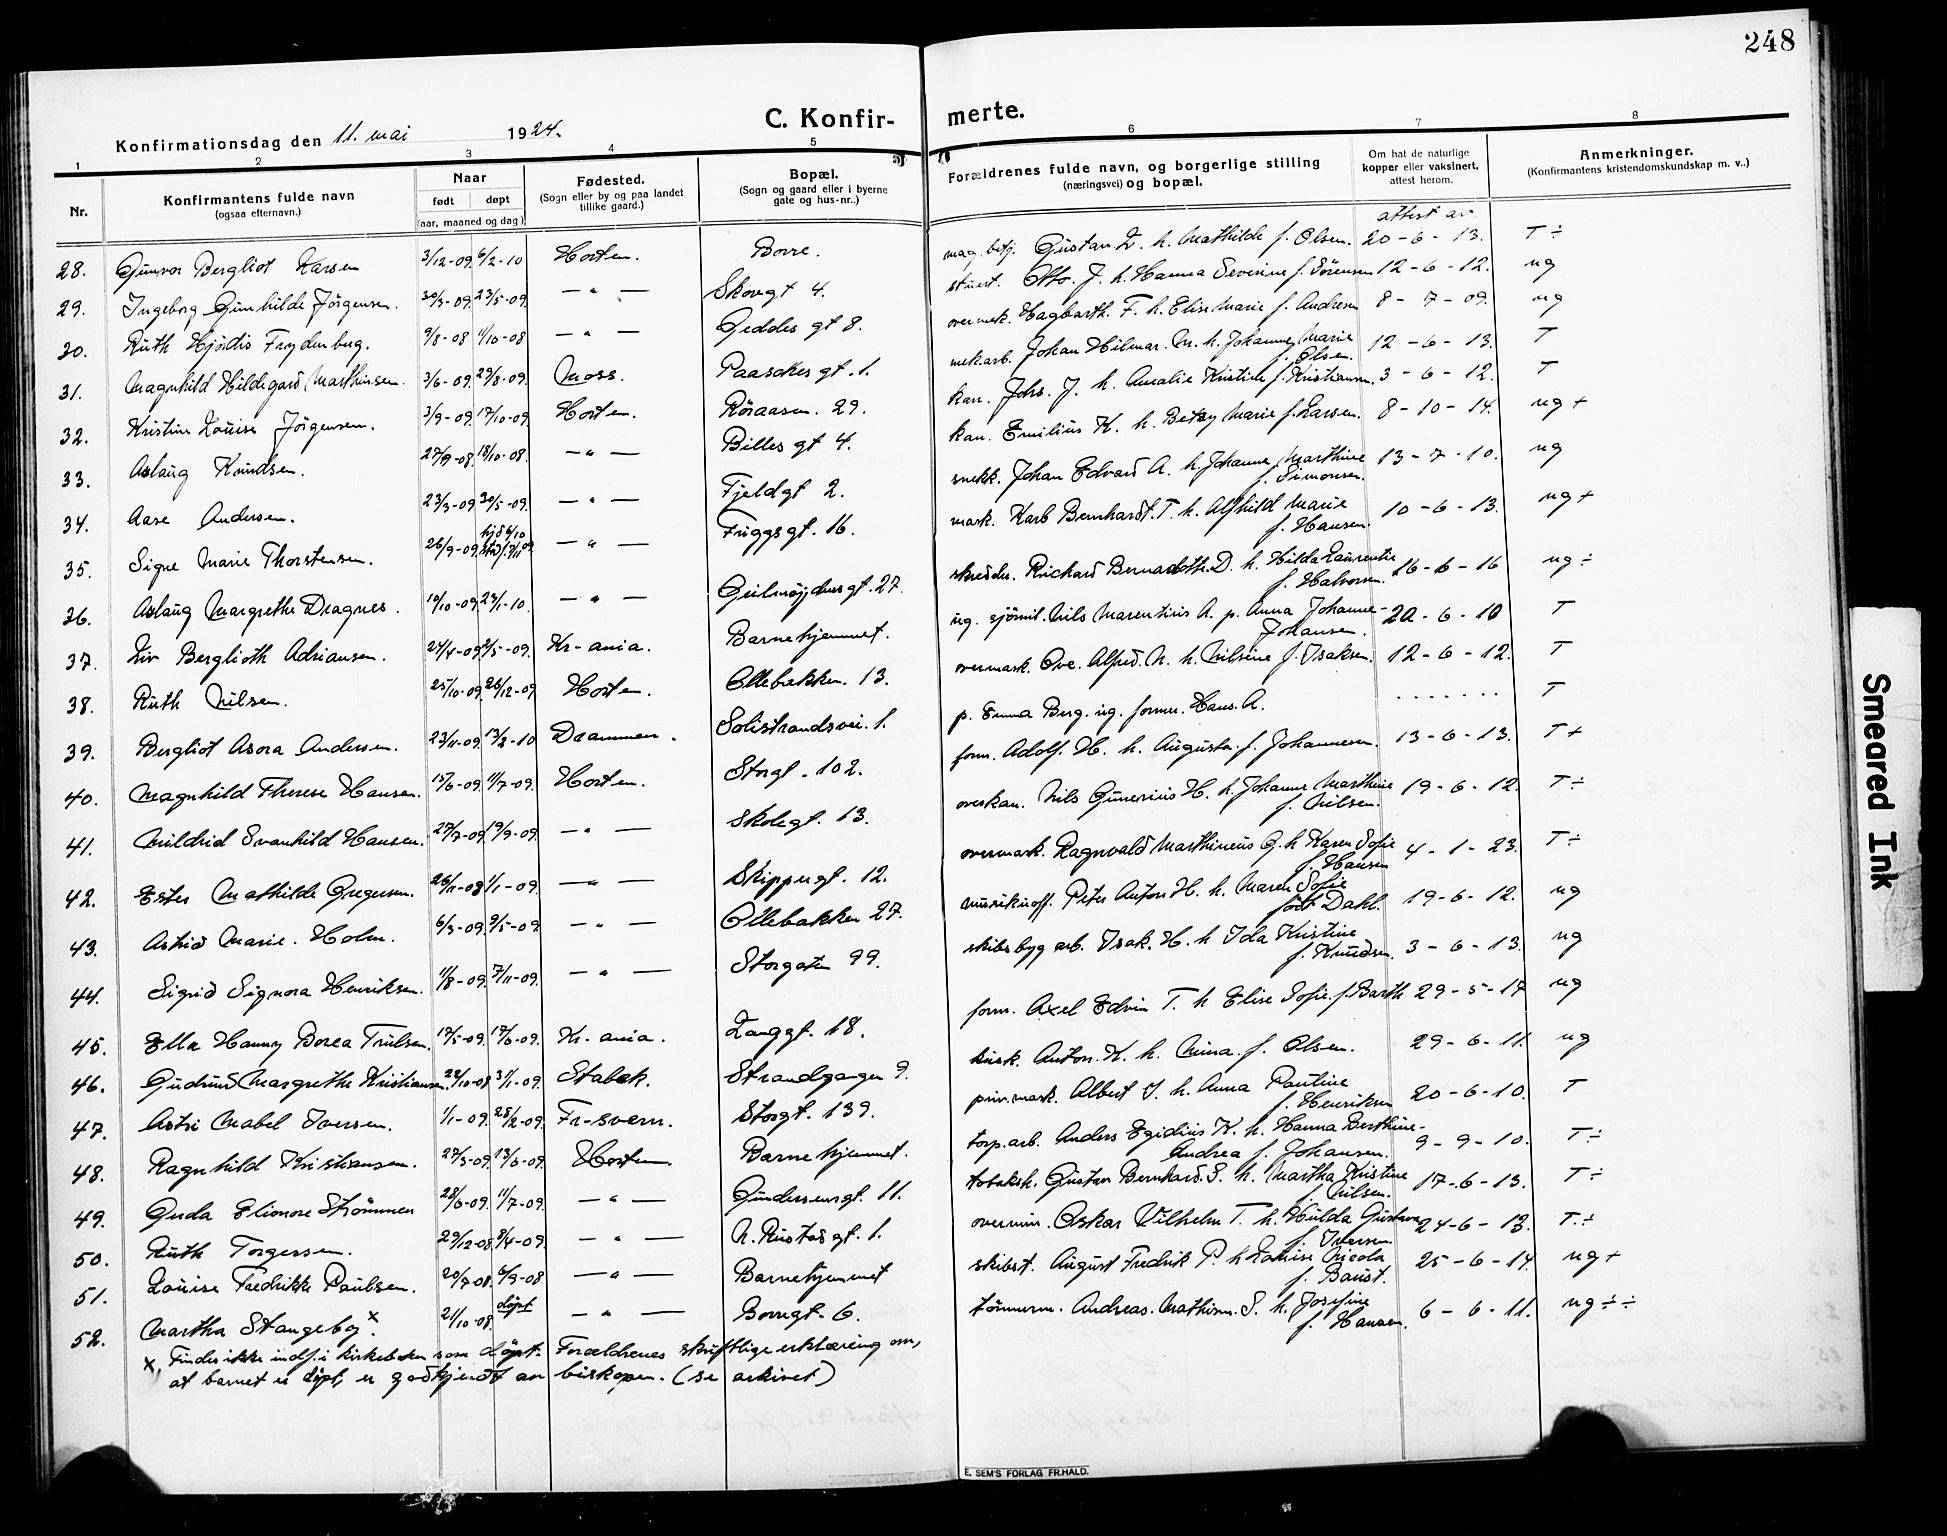 248
C. Konfir- merte.
Konfirmationsdag den 11. mai 1924.
1 2 3 4 5 6 7 8
Nr. Konfirmantens fulde navn (ogsaa efternavn.) Naar født døpt (aar, maaned og dag) Fødested. (Sogn eller by og paa landet tillike gaard.) Bopæl. (Sogn og gaard eller i byerne gate og hus-nr..) Forældrenes fulde navn, og borgerlige stilling (næringsvei) og bopæl. Om hat de naturlige kopper eller vaksinert, attest herom. Anmerkninger. (Konfirmantens kristendomskundskap m. v..)
attest av
28. Gunvor Bergliot Larsen 3/12-09. 6/2-10 Horten. Borre. mag. betj. Gustav L. h. Mathilde f. Olsen. 20-6-13. T ÷
29. Ingeborg Gunhilde Jörgensen. 30/3-09. 23/5-09. — " — Skovgt 4. stuert. Otto. J. h. Hanna Severine f. Sörensen 12-6-12. ug
30. Ruth Hjördis Frydenberg. 9/8-08 4/10-08 — " — Geddes gt 8. overmek. Hagbarth. F. h. Elise Marie f. Andresen 8-7-09. ug
31. Magnhild Hildegard Marthinsen. 3/6-09. 29/8-09. Moss. Paaskes gt. 1. mekarb. Johan Hilmar. M. h. Johanne Marie f. Olsen. 12-6-13. T
32. Kristine Louise Jörgensen. 3/9-09. 17/10-09. Horten. Röraasen. 29. kan. Johs. J. h. Amalie Kristine f. Kristiansen. 3-6-12. T
33. Aslaug Knudsen. 27/9-08. 18/10-08. — " — Billes gt 4. kan. Emilius K. h. Betzy Marie f. Larsen. 8-10-14. ug +
34. Aase Andersen. 23/3-09. 30/5-09. — " — Fjeldgt 2. snekk. Johan Edvard A. h. Johanne Marthine f. Simonsen. 13-7-10. ug
35. Signe Marie Thorstensen. 26/9-09. — " — Friggs gt. 16. mask. Karl Bernhardt. T. h. Alfhild Marie f. Hansen. 10-6-13. ug +
36. Aslaug Margrethe Dragnes. 10/10-09. 23/1-10. — " — Geilmøjdens gt. 27. skredder. Richard Bernadotte. D. h. Hilda Laurentie f. Halvorsen. 16-6-16 ug ÷
37. Liv Berglioth Adriansen. 24/4-09. 2/5-09. Kr-ania. Barnehjemmet. ug. sjömt. Nils Marentius A. p. Anna Johanne Johansen. 20-6-10 T
38. Ruth Nilsen. 25/10-09. 26/12-09 Horten. Ollebakken. 13. overmask. Ove. Alfred. N. h. Nilsine f. Isaksen. 12-6-12. T
39. Bergliot Asora Andersen. 23/11-09. 13/2-10 Drammen. Solistrandsvei. 1. p. Emma Berg. ug. former. Hans. A. . . . . . . . T
40. Magnhild Therese Hansen. 15/6-09. 11/7-09. Horten. Storgt. 102. form. Adolf. H. h. Augusta. f. Johannesen. 13-6-13. T +
41. Mildrid Svanhild Hansen. 27/7-09. 19/9-09. — " — Skolegt. 13. overkan. Nils Gunerius H. h. Johanne Marthine f. Nilsen. 19-6-12. T ÷
42. Ester Mathilde Gregersen. 26/11-08 1/1-09. — " — Skippergt. 12. overmask. Ragnvald Marthineus G. h Karen Sofie f. Hansen 4-1-23. T ÷
43. Astrid Marie. Holm. 6/3-09. 9/5-09 — " — Ollebakken 27. musikuoff. Peter Anton H. h. Maren Sofie født Dahl. 19-6-12. ug
44. Sigrid Signora Henriksen. 1/8-09. 7/11-09. — " — Storgaten 99. skibsbyg arb. Isak. H. h Ida Kristine f. Knudsen. 3-6-13. ug
45. Ella Hanny Borea Trulsen. 17/5-09. 17/6-09. Kr-ania. Langgt. 18. form. Axel Edvin T. h Elise Sofie. f. Barth 29-5-17 ug
46. Gudrun Margrethe Kristiansen. 22/10-08 31/1-09. Stabek. Strandgangen 9. kusk. Anton. K. h. Mina. f. Olsen. 29-6-11. ug
47. Astri Mabel Iversen. 1/1-09. 28/2-09. Fr-svern. Storgt. 139. prim.mask. Albert I. h. Anna Pauline f. Henriksen 20-6-10. T
48. Ragnhild Kristiansen. 27/3-09. 13/6-09. Horten. Barnehjemmet. torp.arb. Anders Egidius K. h. Hanna Berthine- Andrea f. Johansen. 9-9-10. T ÷
49. Gerda Elionore Strömmen 28/6-09. 11/7-09. — " — Gundersensgt. 11. tobaksh. Gustav Bernhard. S. h. Martha Kristine f. Nilsen. 17-6-13. T ÷
50. Ruth Torgersen. 29/12-08. 4/4-09. — " — N. Rustadgt. 1. overmin. Oskar Vilhelm T. h. Hulda Gustava f. Iversen 24-6-13. T. ÷
51. Louise Fredrikke Paulsen. 20/7-08. 6/9-08 — " — Barnehjemmet skibst. August Fredrik P. h Louise Nicola f. Baust. 25-6-14. ug +
52. Martha Stangeby x. 21/10-08. døpt — " — Borregt. 6. tömmerm. Andreas. Mathisen. S. h. Josefine f. Hansen. 6-6-11. ug ÷ ÷
x, Findes ikke indf. i kirkeboken som döpt. Forældrenes skriftlige erklæring om,
at barnet er döpt, er godkjendt av biskopen. (se arkivet)
E. SEM'S FORLAG FR.HALD.
Smeared Ink